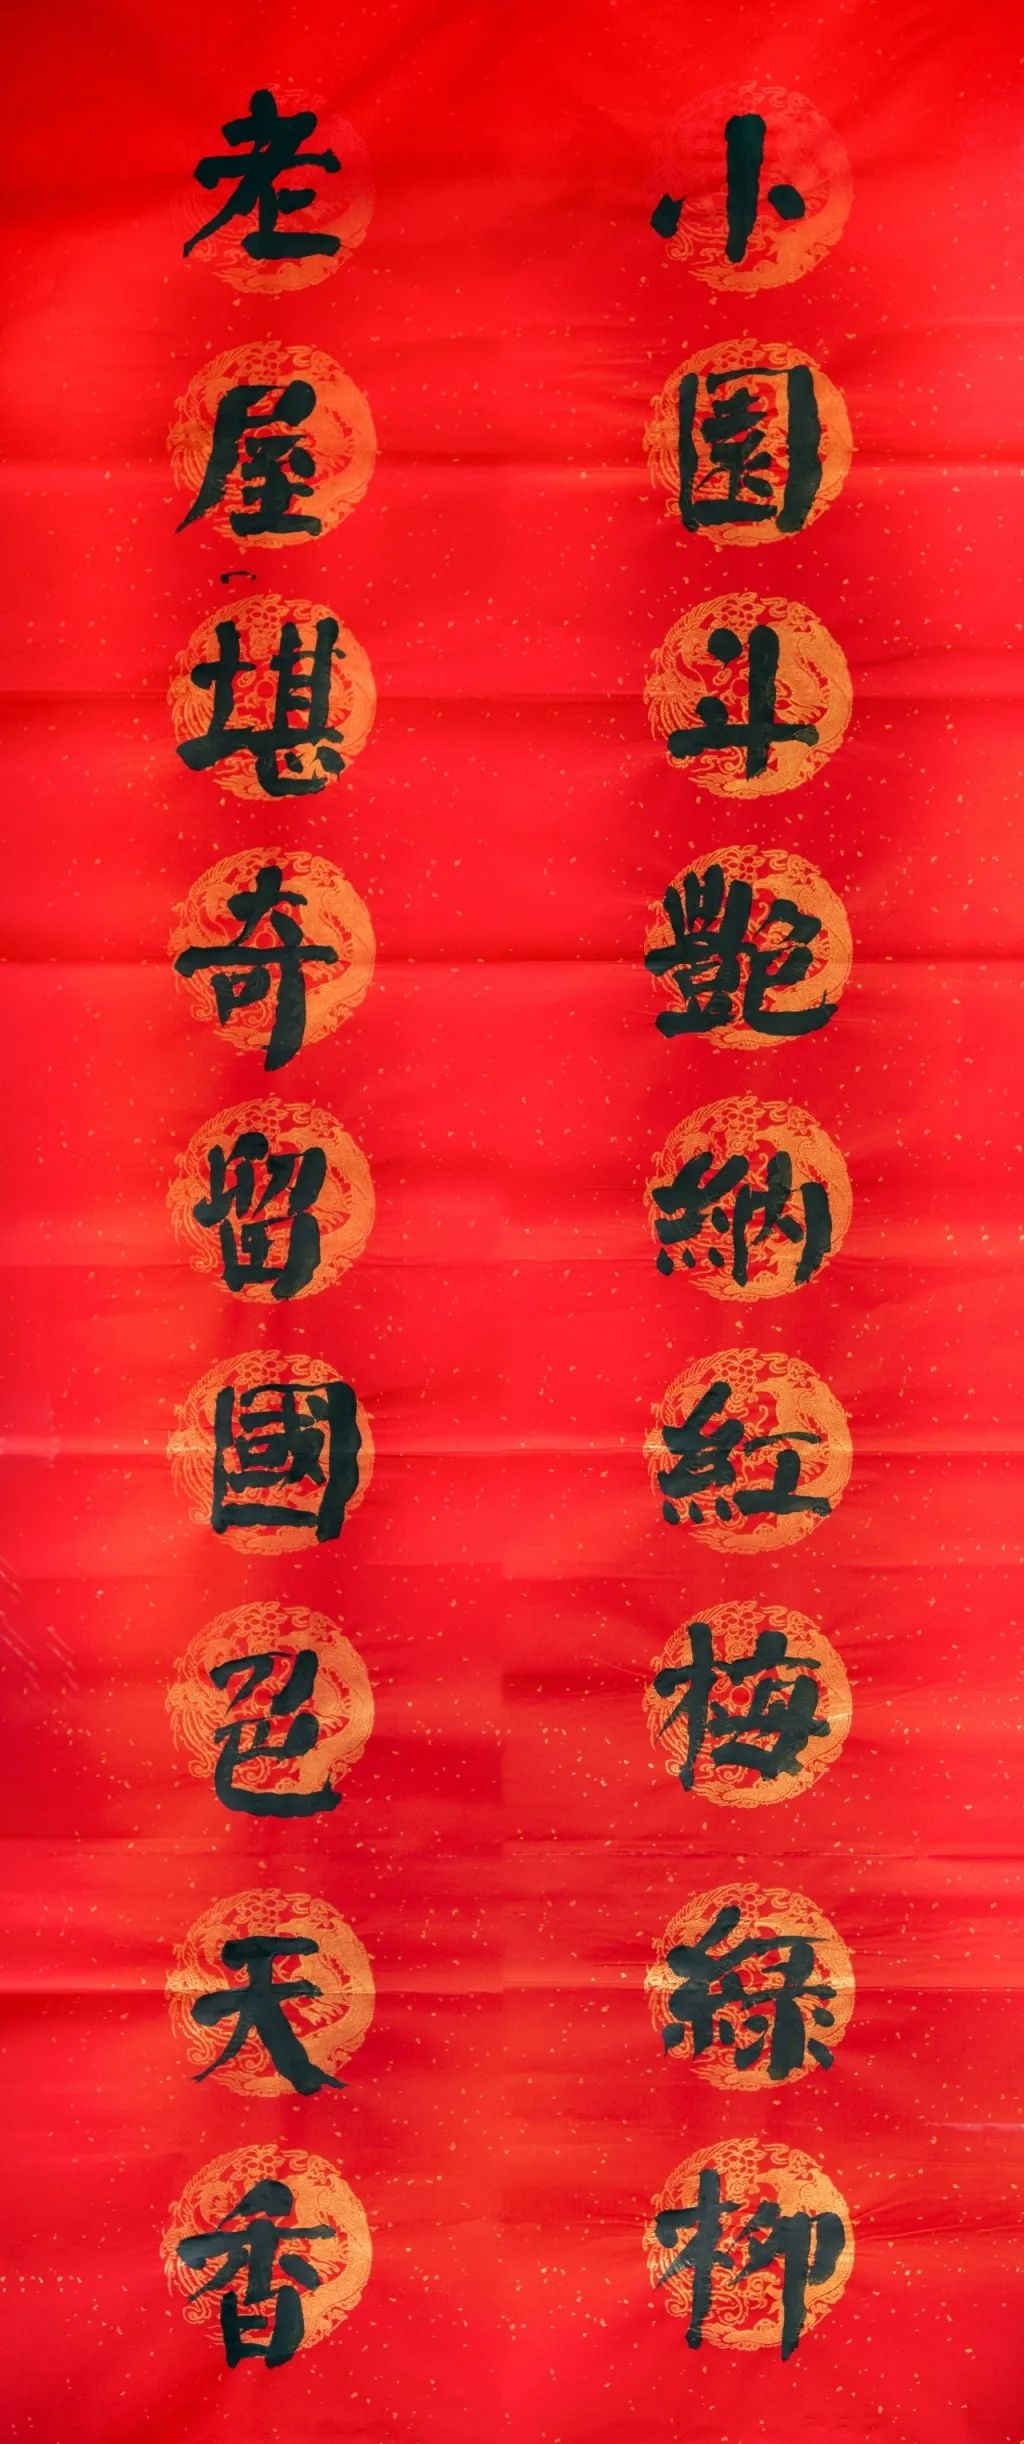 小園斗艷納紅梅綠柳
老屋堪奇留國色天香